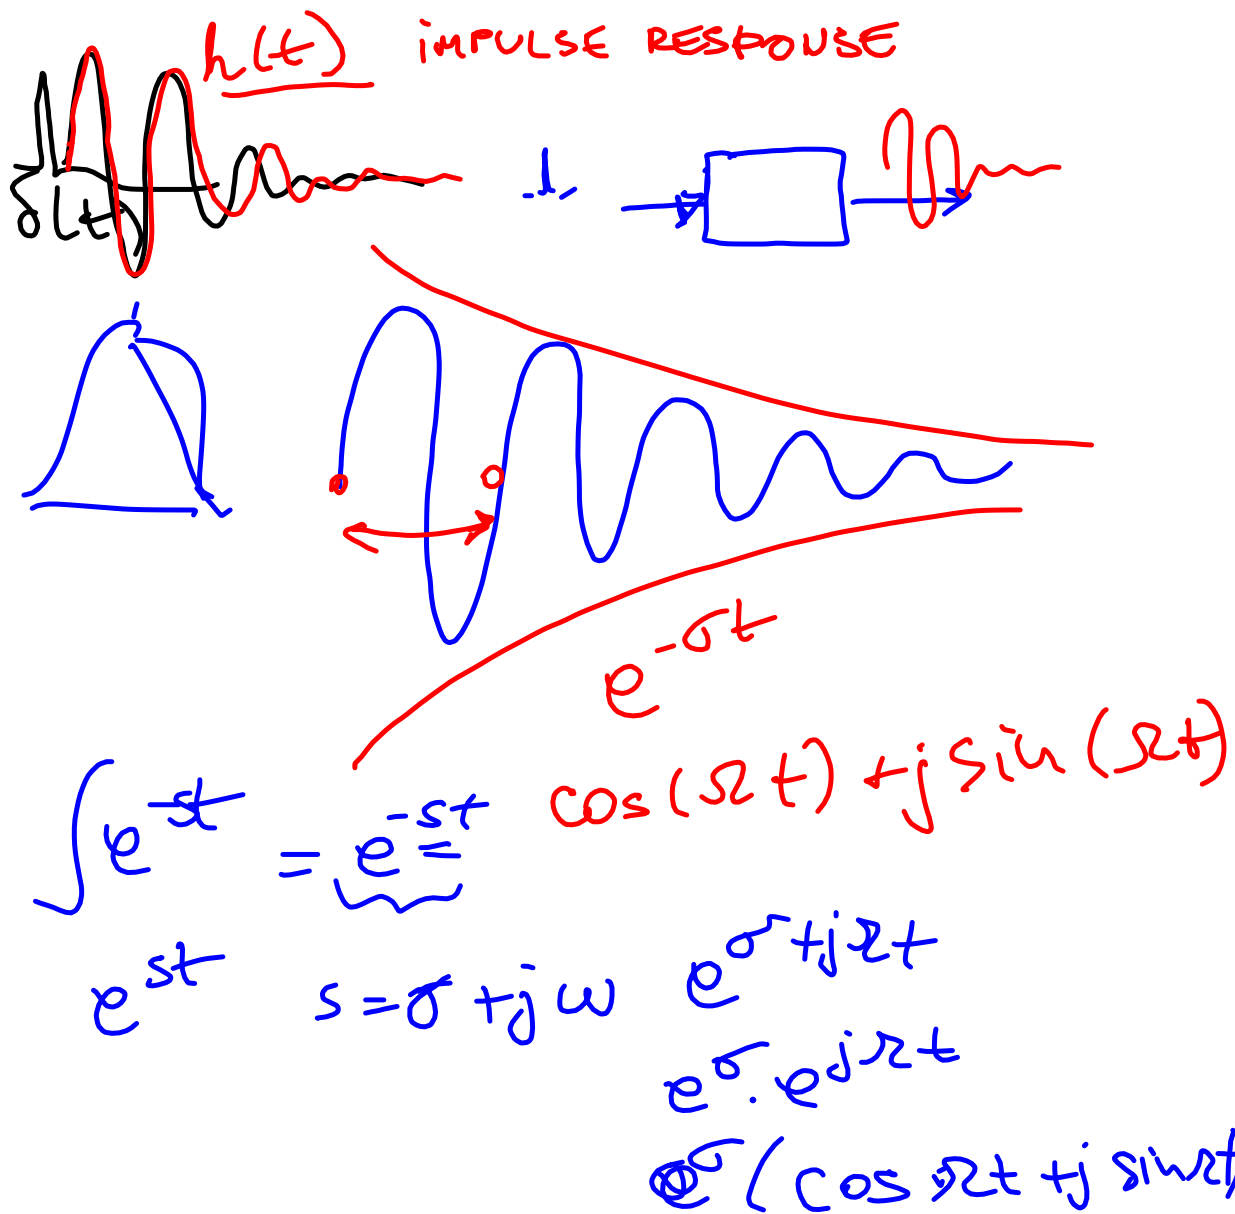 h(t) iMPULSE RESPONSE
δ(t)
e^-σt
cos(Ωt) + j sin(Ωt)
∫ e^-st = e^-st
e^st s = σ + jω e^σ+jΩt
e^σ . e^jΩt
e^σ (cos Ωt + j sin Ωt)